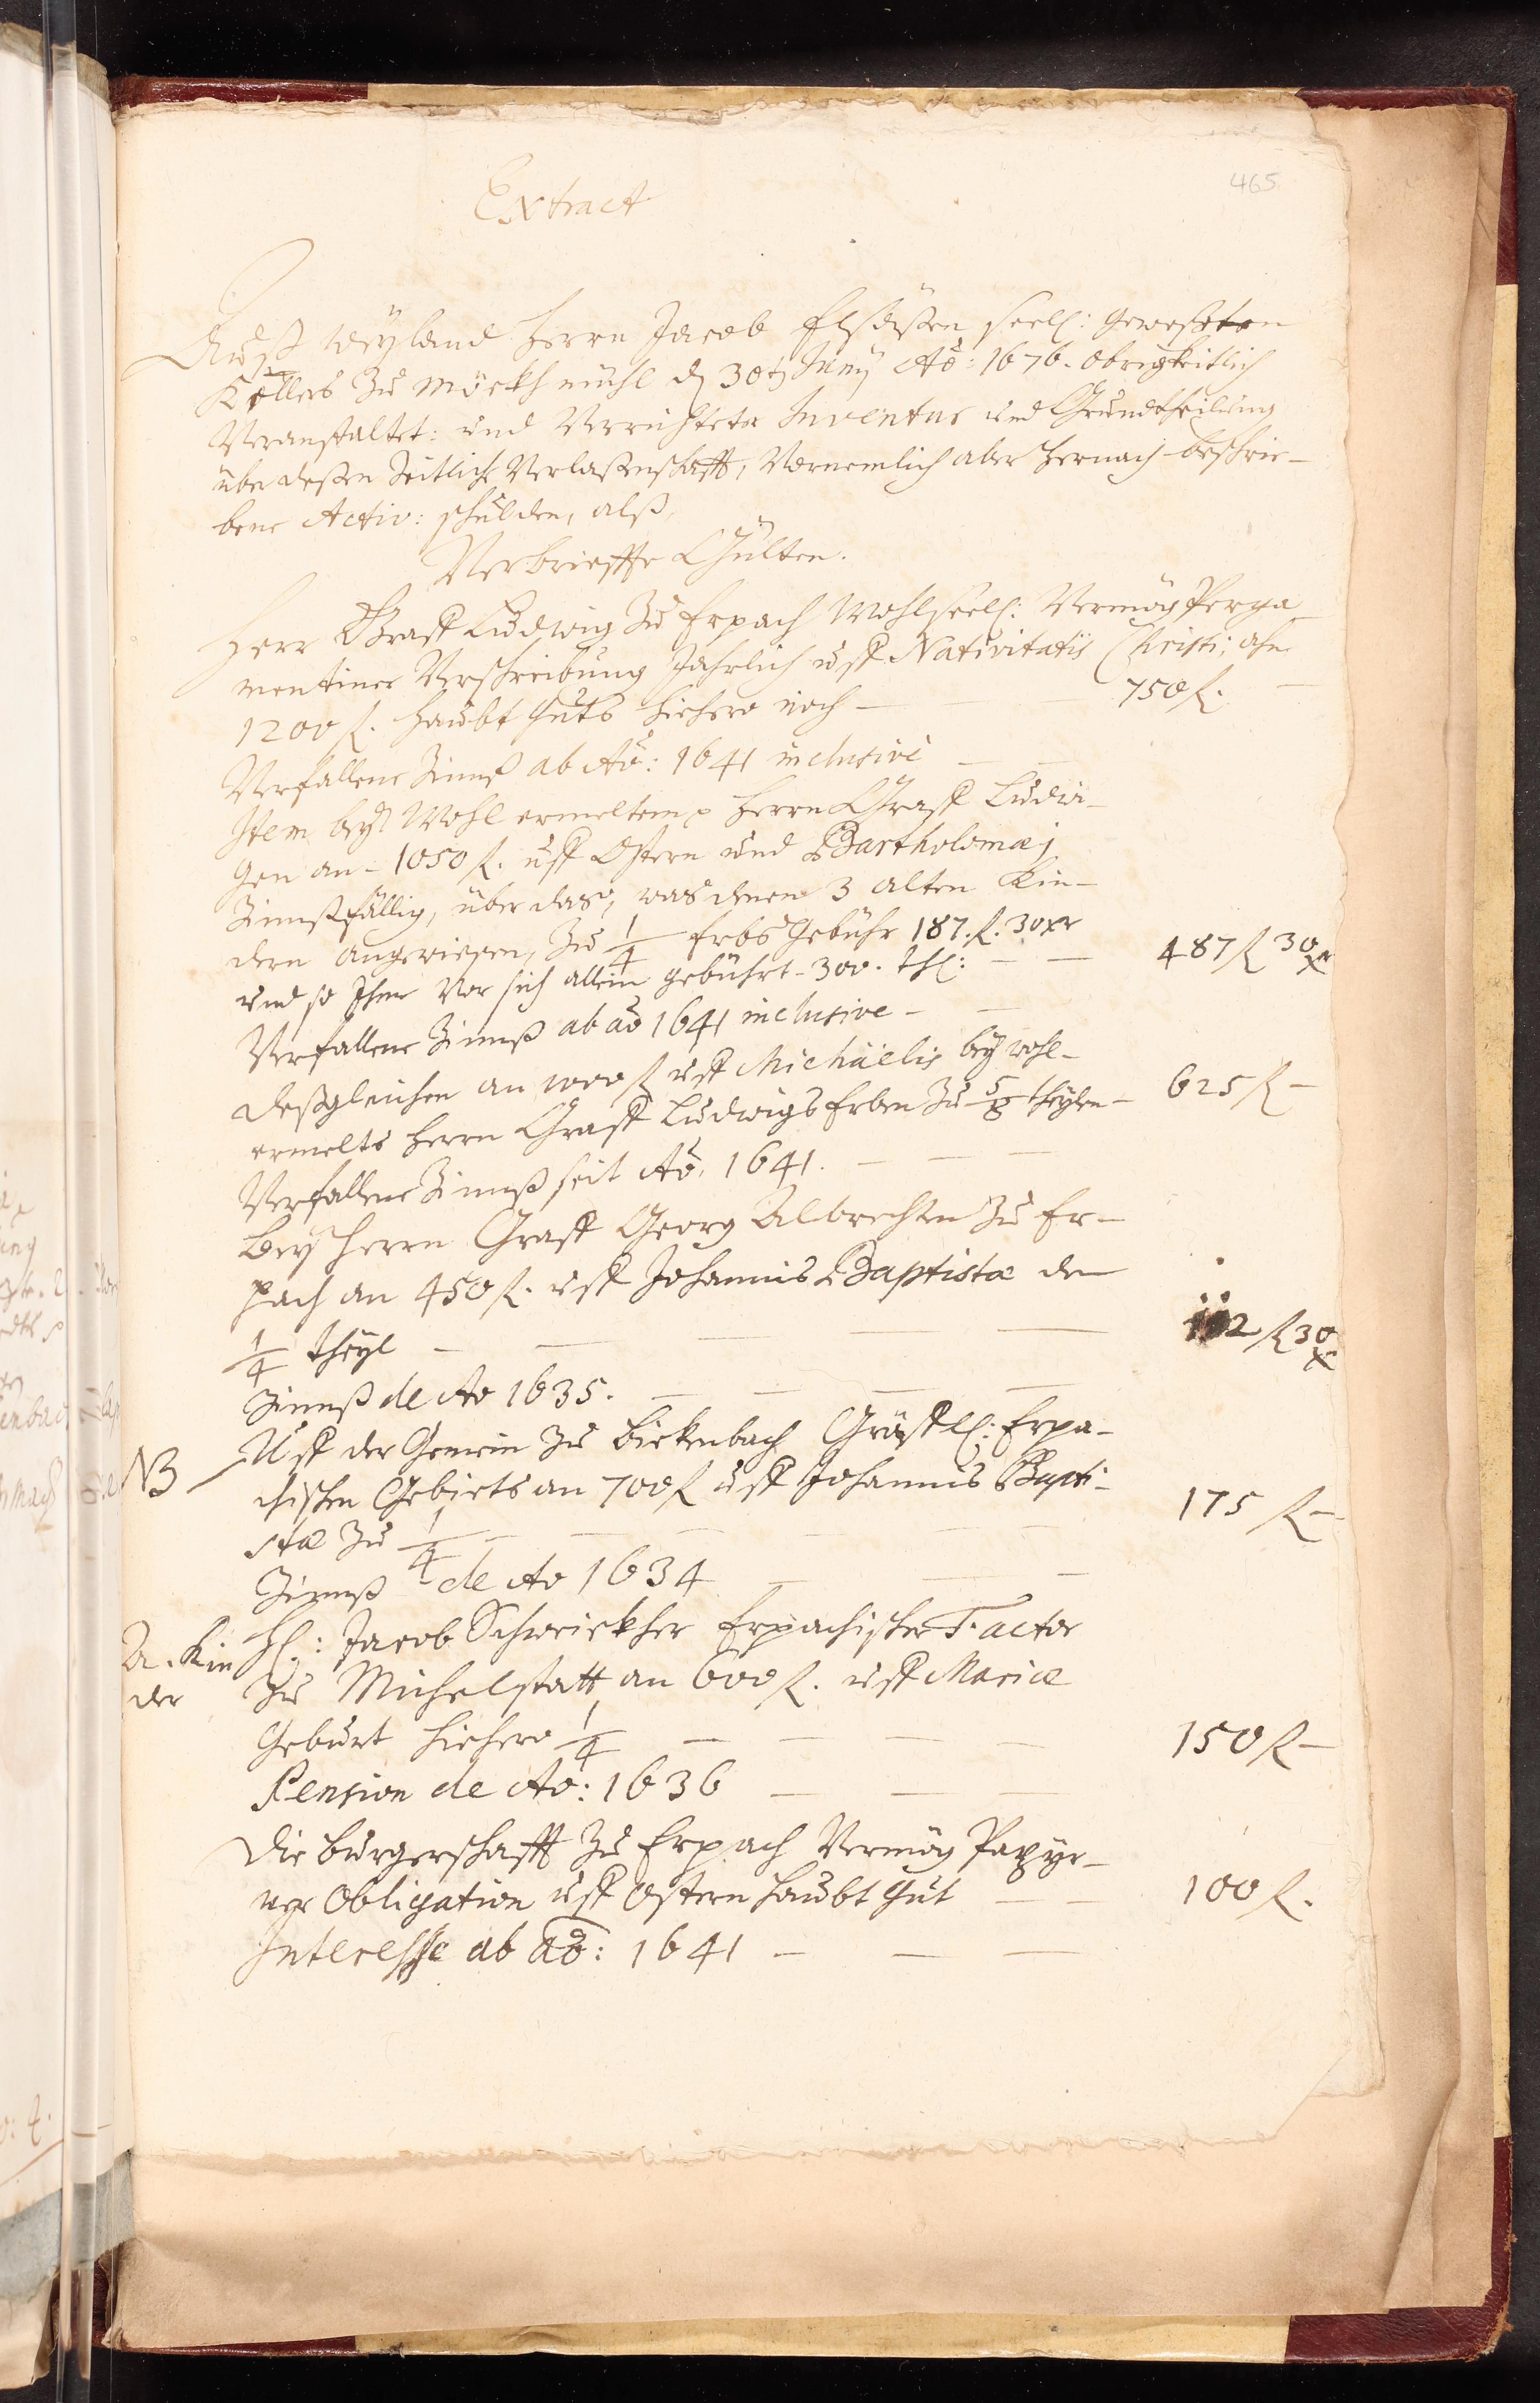 465
Extract
Auß weyland Herrn Jacob Elsäßen seel: geweßten
Kellers zu Möckhmühl d 30t Juny Aõ: 1676. obrigkeitlich
Veranstaltet: und Verrichteter Inventur und Grundtheilung
über deßen Zeitliche Verlaßenschafft, Vornemlich aber hernach beschrie-
bene Activ: schulden, alß,
Verbrieffte Gülten.
Herr Graff Ludwig zu Erpach Wohlseel: Vermög Perga-
mentiner Verschreibung Jährlich uff Nativitatis Christi, ahn
1200 fl. Haubt guts hiehero noch — 750 fl. —
Verfallene Zinnß ab Aõ: 1641 inclusivè —
Item bey Wohl ermeltem Herrn Graff Ludwi-
gen an - 1050 fl. uff Ostern und Bartholomæj
Zinnßfällig, über das, was denen 3 alten Kin-
dern angewiesen, zu 1/4 Erbs gebühr 187. fl. 30 xr
und so Ihme Vor sich allein gebührt - 300. thl: — — 487 fl 30 xr
Verfallene Zinnß ab aõ 1641 inclusive — —
deßgleichen an 1000 fl uff Michäelis bey wohl-
ermelts Herrn Graff Ludwigs Erben zu 5/8 theylen — 625 fl —
Verfallene Zinnß seit Aõ. 1641. — — —
Bey Herrn Graff Georg Albrechten zu Er-
pach an 450 fl. uff Johannis Baptistæ den
1/4 theyl — — — — — 112 fl 30 xr
Zinnß de Ao 1635. — — — —
NB Uff der Gemein zu Bickenbach Gräffl: Erpa-
chischen Gebiets an 700 fl uff Johannis Bapti-
stæ zu 1/4 — — — — — — 175 fl —
Zinnß de Ao 1634 — — —
A. Kin H: Jacob Schweickher Erpachischer Factor
der zu Michelstatt an 600 fl. uff Mariæ
Geburt hiehero 1/4 — — — — 150 fl —
Pension de Aõ: 1636 — — —
Die burgerschafft zu Erpach Vermög Papyr-
ner Obligation uff Ostern Haubt gut — 100 fl.
Interesse ab aõ: 1641 — — —